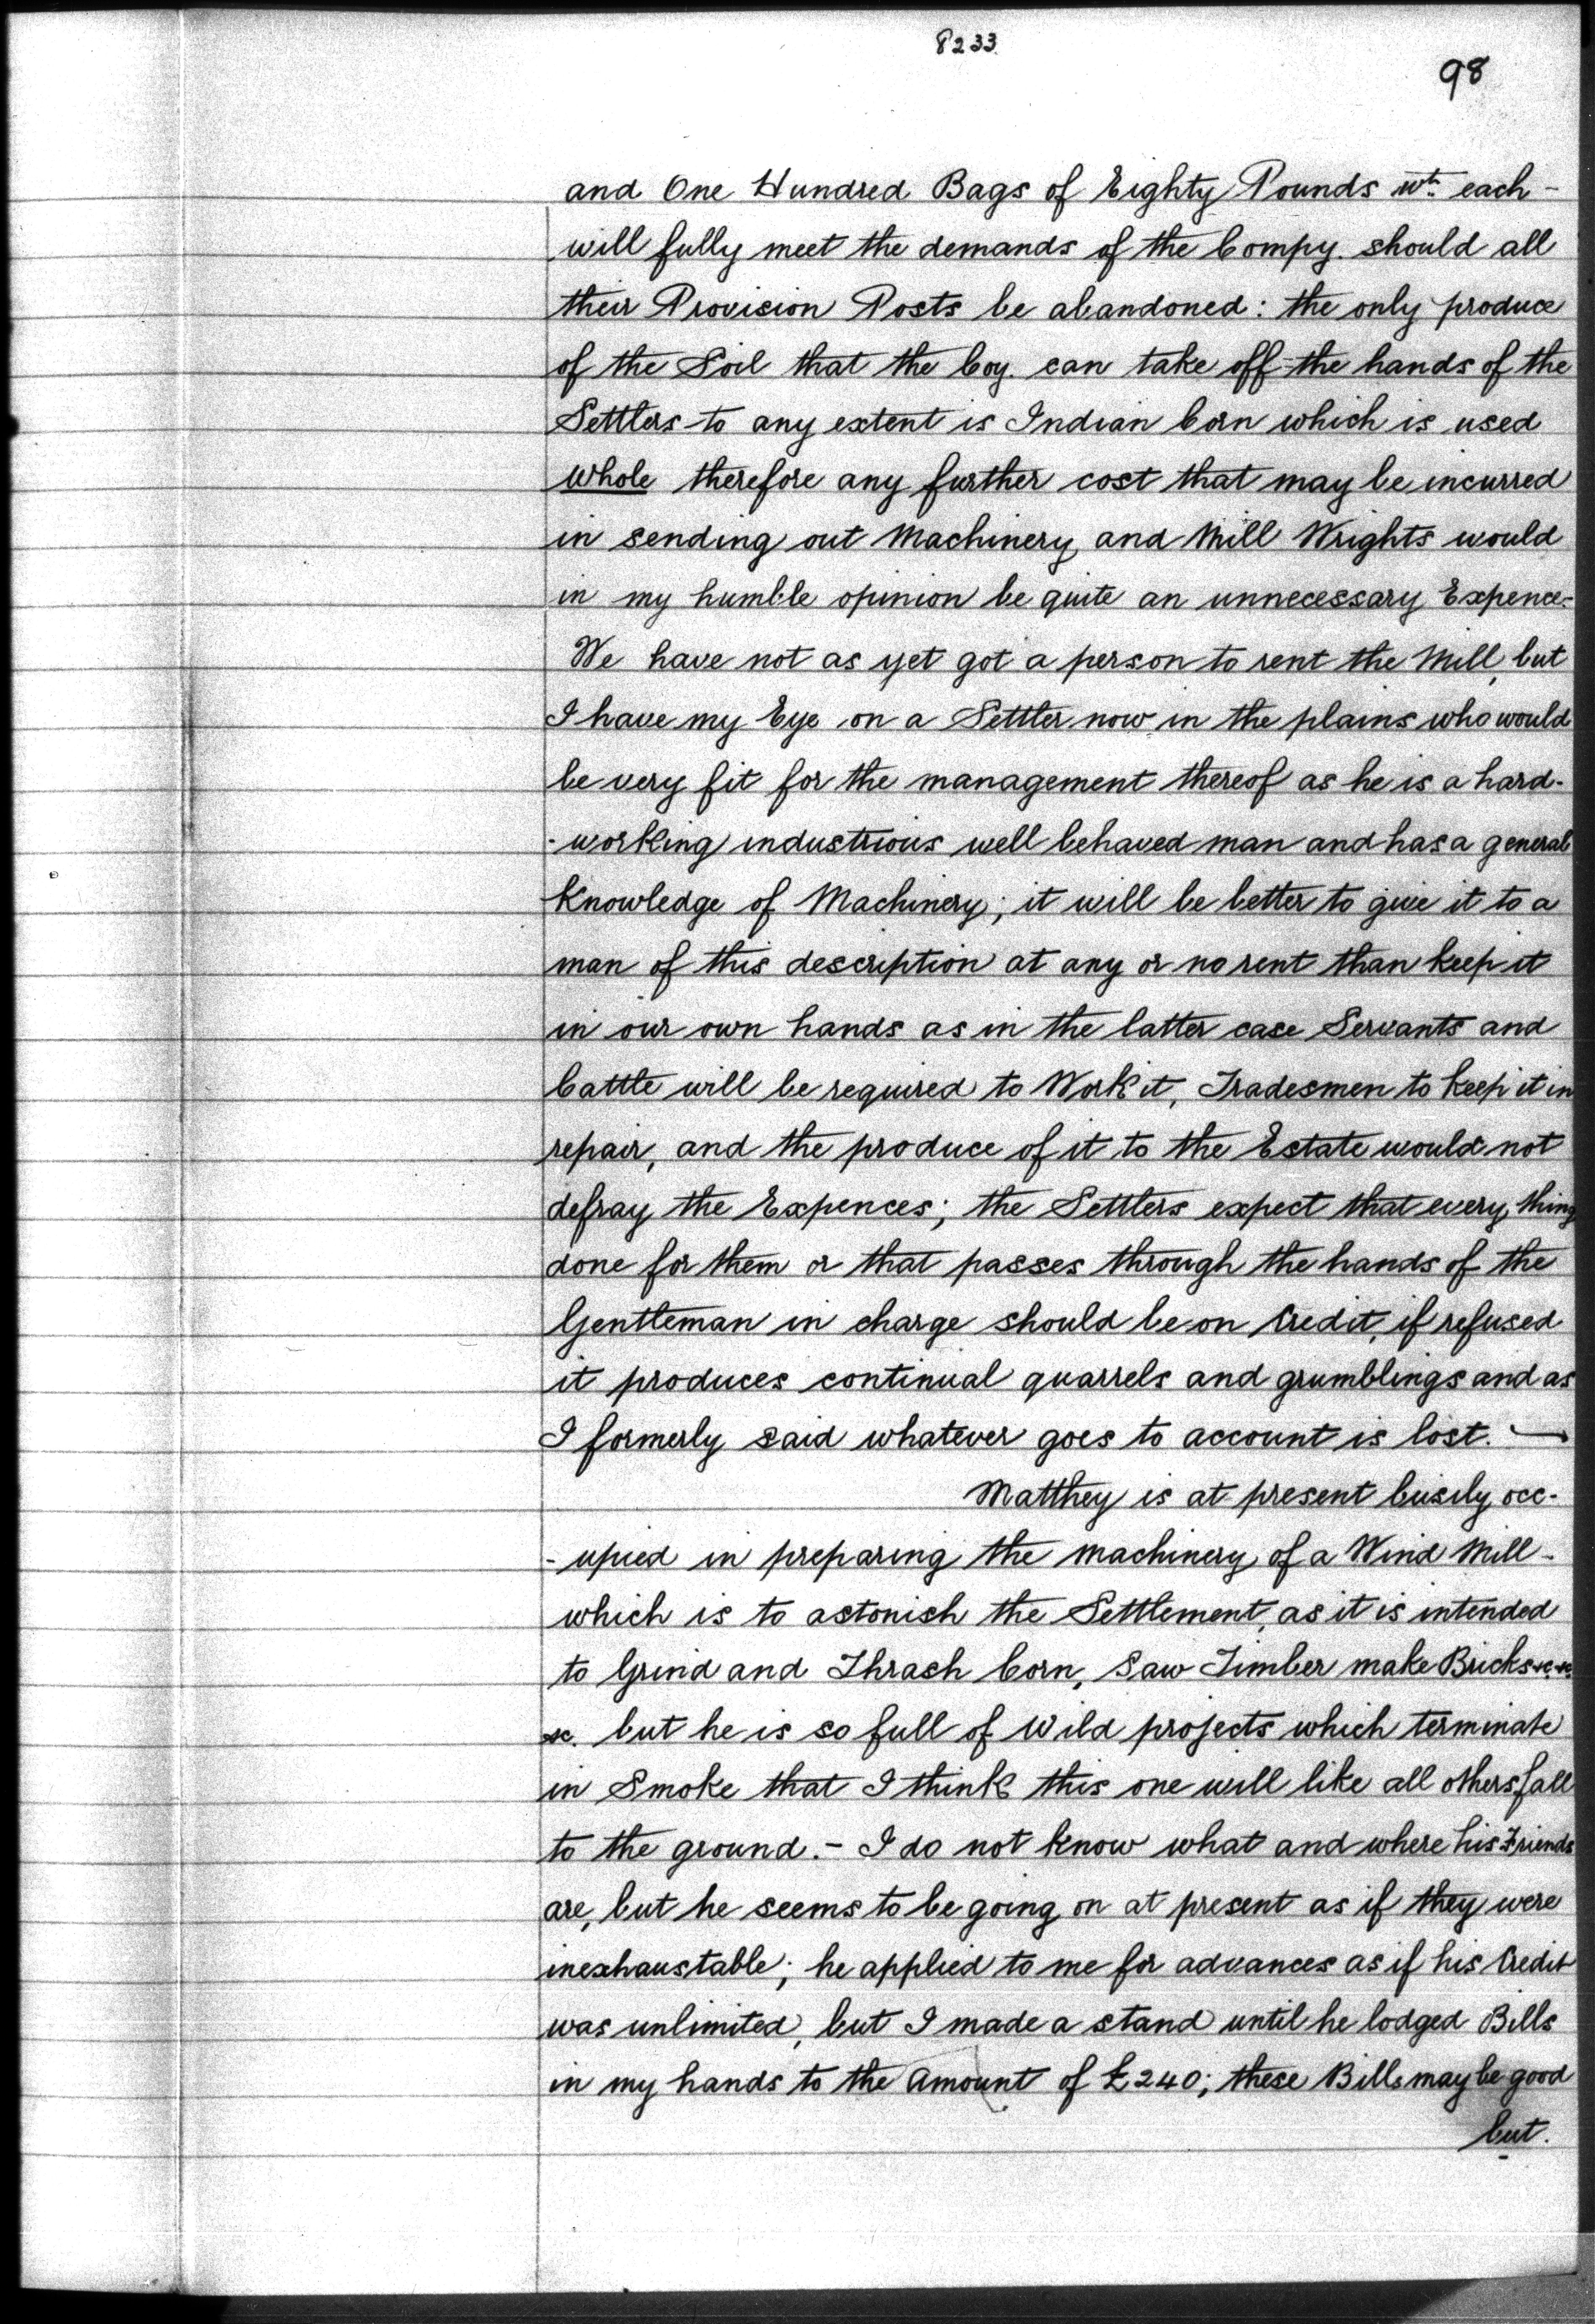 8233
98
and One Hundred Bags of Eighty Pounds wt. each -
will fully meet the demands of the Compy. should all
their Provision Posts be abandoned: the only produce
of the Soil that the Coy. can take off the hands of the
Settlers to any extent is Indian Corn which is used
whole therefore any further cost that may be incurred
in sending out Machinery and Mill Wrights would
in my humble opinion be quite an unnecessary Expence-
We have not as yet got a person to rent the Mill, but
I have my Eye on a Settler now in the plains who would
be very fit for the management thereof as he is a hard-
-working industrious well behaved man and has a general
Knowledge of Machinery; it will be better to give it to a
man of this description at any or no rent than keep it
in our own hands as in the latter case Servants and
Cattle will be required to Work it, Tradesmen to keep it in
repair, and the produce of it to the Estate would not
defray the Expences; the Settlers expect that every thing
done for them or that passes through the hands of the
Gentleman in charge should be on Credit, if refused
it produces continual quarrels and grumblings and as
I formerly said whatever goes to account is lost. —
Matthey is at present busily occ-
-upied in preparing the machinery of a Wind Mill -
which is to astonish the Settlement, as it is intended
to Grind and Thrash Corn, Saw Timber make Bricks &c. &c.
&c. but he is so full of Wild projects which terminate
in Smoke that I think this one will like all others fall
to the ground. - I do not know what and where his Friends
are, but he seems to be going on at present as if they were
inexhaustable; he applied to me for advances as if his Credit
was unlimited, but I made a stand until he lodged Bills
in my hands to the Amount of £240; these Bills may be good
but.